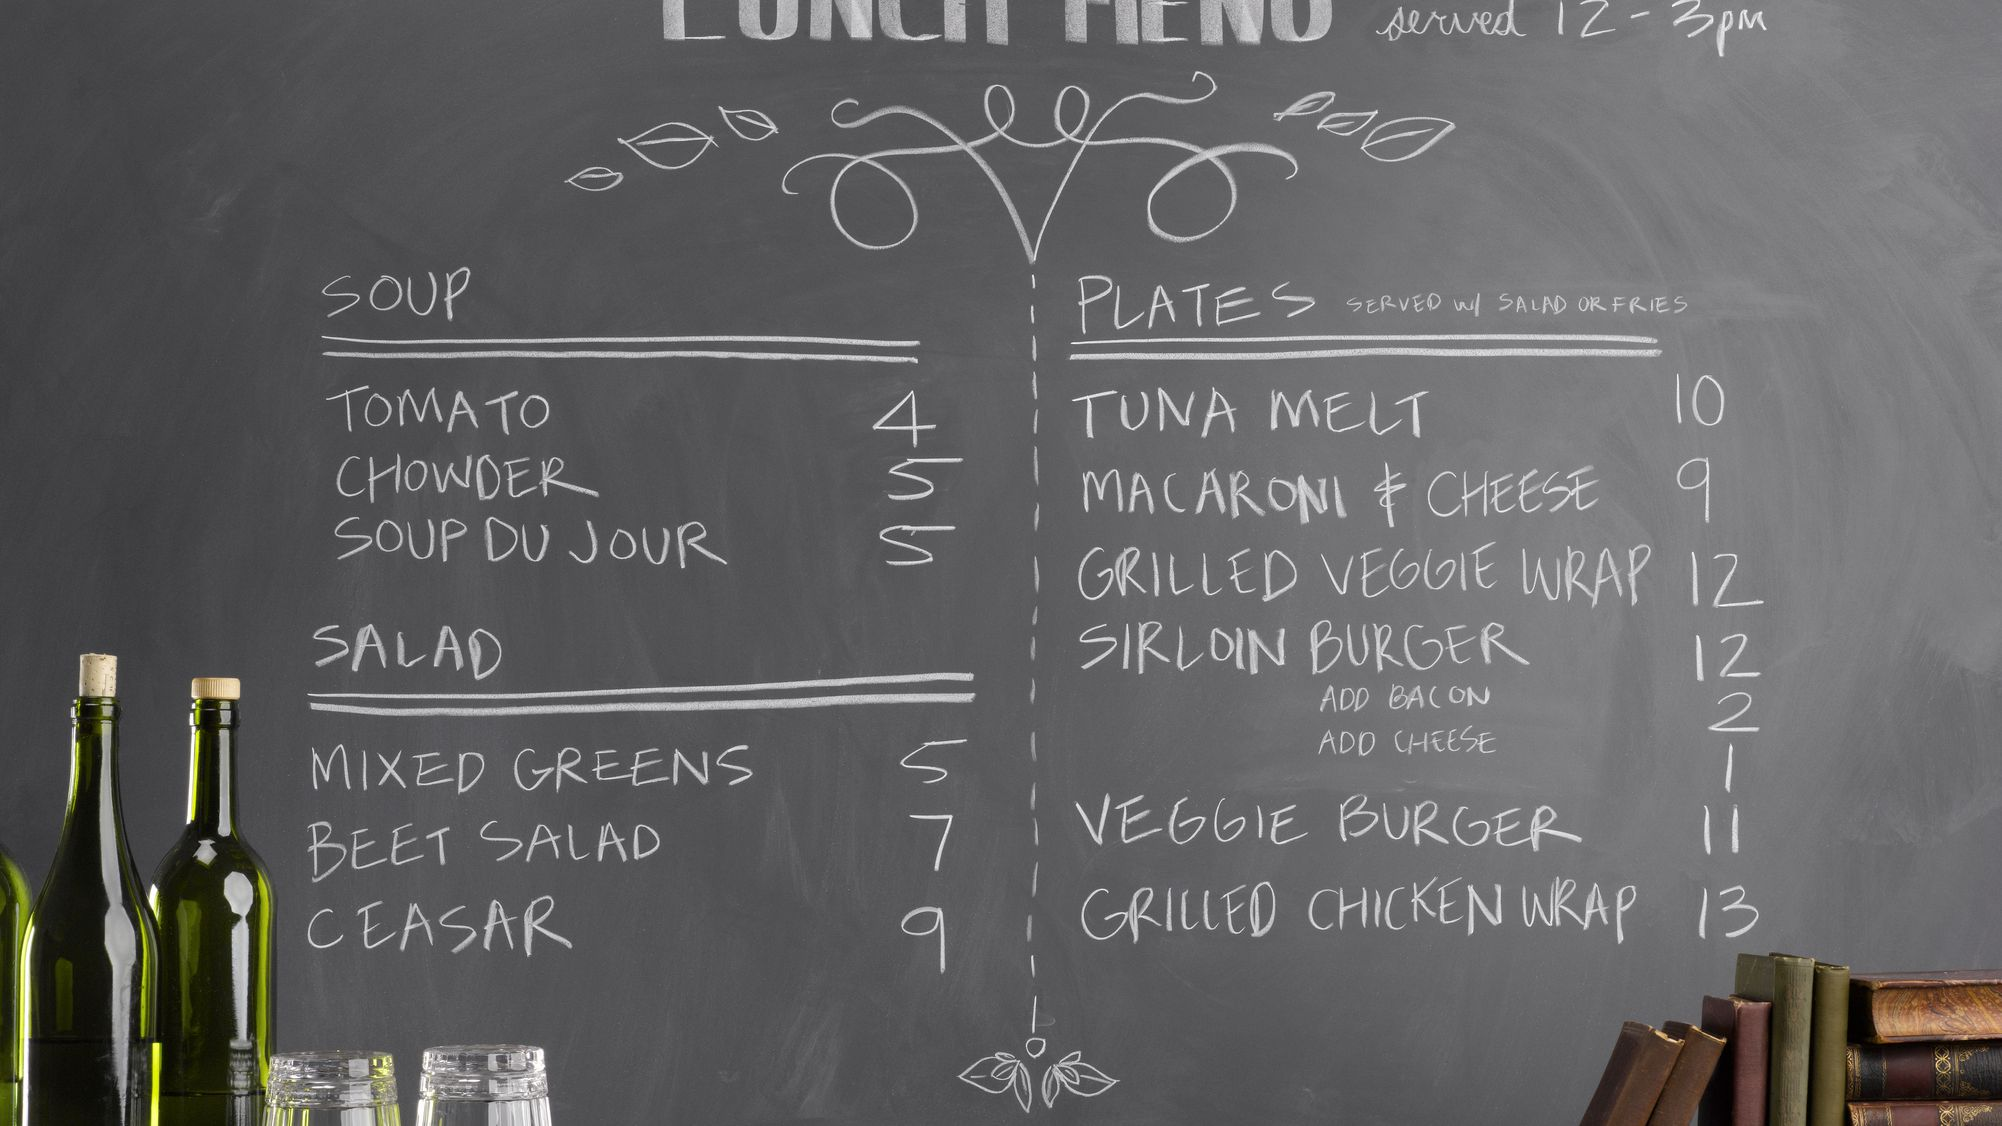 LUNCH MENU served 12-3pm
SOUP
TOMATO 4
CHOWDER 5
SOUP DU JOUR 5
SALAD
MIXED GREENS 5
BEET SALAD 7
CEASAR 9
PLATES SERVED W/ SALAD OR FRIES
TUNA MELT 10
MACARONI & CHEESE 9
GRILLED VEGGIE WRAP 12
SIRLOIN BURGER 12
ADD BACON 2
ADD CHEESE 1
VEGGIE BURGER 11
GRILLED CHICKEN WRAP 13